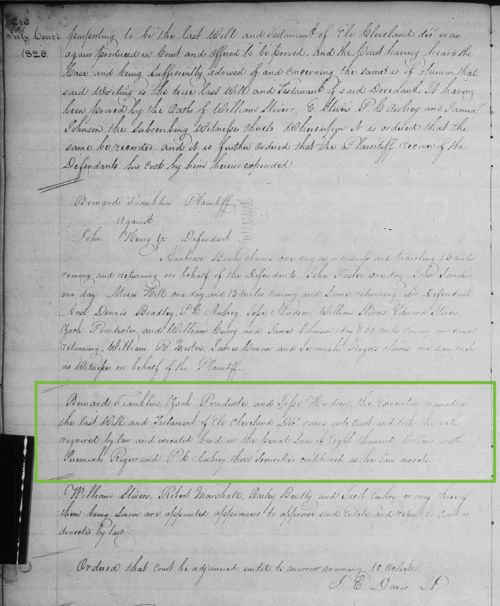 218
July Court
1828
purporting to be the last Will and Testament of Eli Cleveland decd was
again produced in Court and offered to be proved. And the Court having heard the
Case and being sufficiently advised of and concerning the same is of that
said Writing is the true last Will and Testament of said Decedant. It having
been proved by the Oaths of William Stivers, E. Stivers P. C. Aubrey and James
Johnson the Subscribing Witnesses thereto Whereupon it is ordered that the
same be recorded and it is further ordered that the Plaintiff recover of the
Defendants his cost by him herein expended
Bernard Franklin Plaintiff
against
John Henry &c Defendant
Ambrose Bush claims one day as a witness and traveling 13 miles
coming and returning on behalf of the Defendants. John Foster one day John Sanders
one day Moses Hill one day and 13 miles coming and same returning for Defendant
And Dennis Bradley, P. C. Aubrey, Jesse Hudson, William Stivers, Edward Stivers
York Poindexter and William Curry and James Johnson 1 day & 30 miles coming and same
returning, William B. James Duran and Jeremiah Rogers claims one day each
as Witnesses on behalf of the Plaintiff.
Bernard Franklin, York Poindexter and Jesse Hudson, the Executors named in
the last Will and Testament of Eli Cleveland Decd. came into court and took the oath
required by law and executed bond in the penal sum of Eight thousand dollars with
Jeremiah Rogers and P. C. Aubrey their securities conditioned as the law directs.
William Stivers, Robert Marshall, Bailey and or any three of
them being sworn are appointed appraisers to appraise said Estate and return to Court as
directed by law
Ordered that court be adjourned until to morrow morning 10 oclock
J E Davis